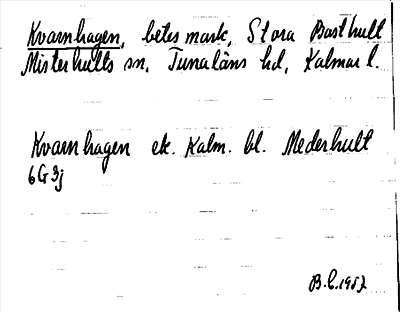 Kvarnhagen, betesmark, Stora Basthult
Misterhults sn, Tunaläns hd, Kalmar l.
Kvarnhagen ek. Kalm. bl. Mederhult
6G3j
B.L. 1957